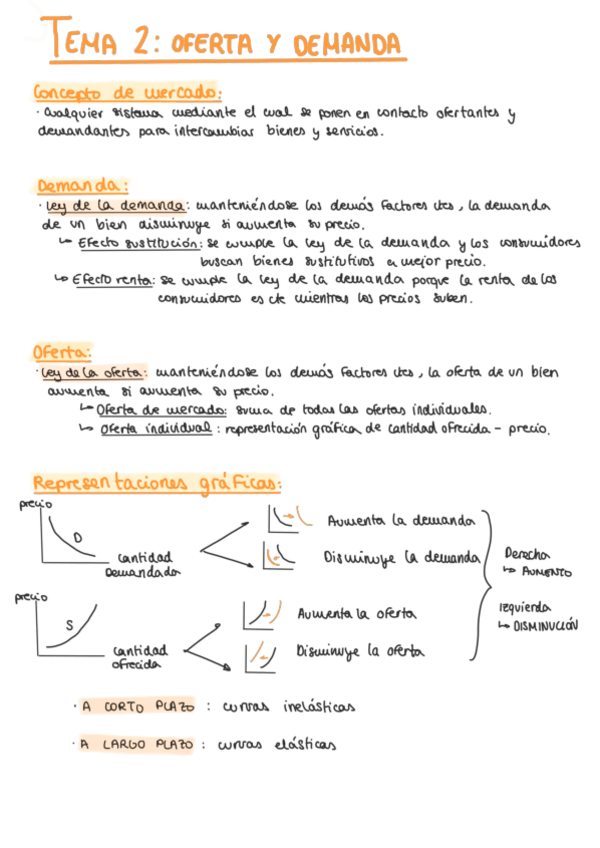 TEMA 2: OFERTA Y DEMANDA
Concepto de mercado:
· Cualquier sistema mediante el cual se ponen en contacto ofertantes y
demandantes para intercambiar bienes y servicios.
Demanda:
· Ley de la demanda: manteniéndose los demás factores ctes, la demanda
de un bien disminuye si aumenta su precio.
↳ Efecto sustitución: se cumple la ley de la demanda y los consumidores
buscan bienes sustitutivos a mejor precio.
↳ Efecto renta: se cumple la ley de la demanda porque la renta de los
consumidores es cte mientras los precios suben.
Oferta:
· Ley de la oferta: manteniéndose los demás factores ctes, la oferta de un bien
aumenta si aumenta su precio.
↳ Oferta de mercado: suma de todas las ofertas individuales.
↳ Oferta individual: representación gráfica de cantidad ofrecida - precio.
Representaciones gráficas:
precio
D
cantidad
Demandada
Aumenta la demanda
Disminuye la demanda
precio
S
cantidad
ofrecida
Aumenta la oferta
Disminuye la oferta
Derecha
↳ AUMENTO
Izquierda
↳ DISMINUCIÓN
· A CORTO PLAZO: curvas inelásticas
· A LARGO PLAZO: curvas elásticas